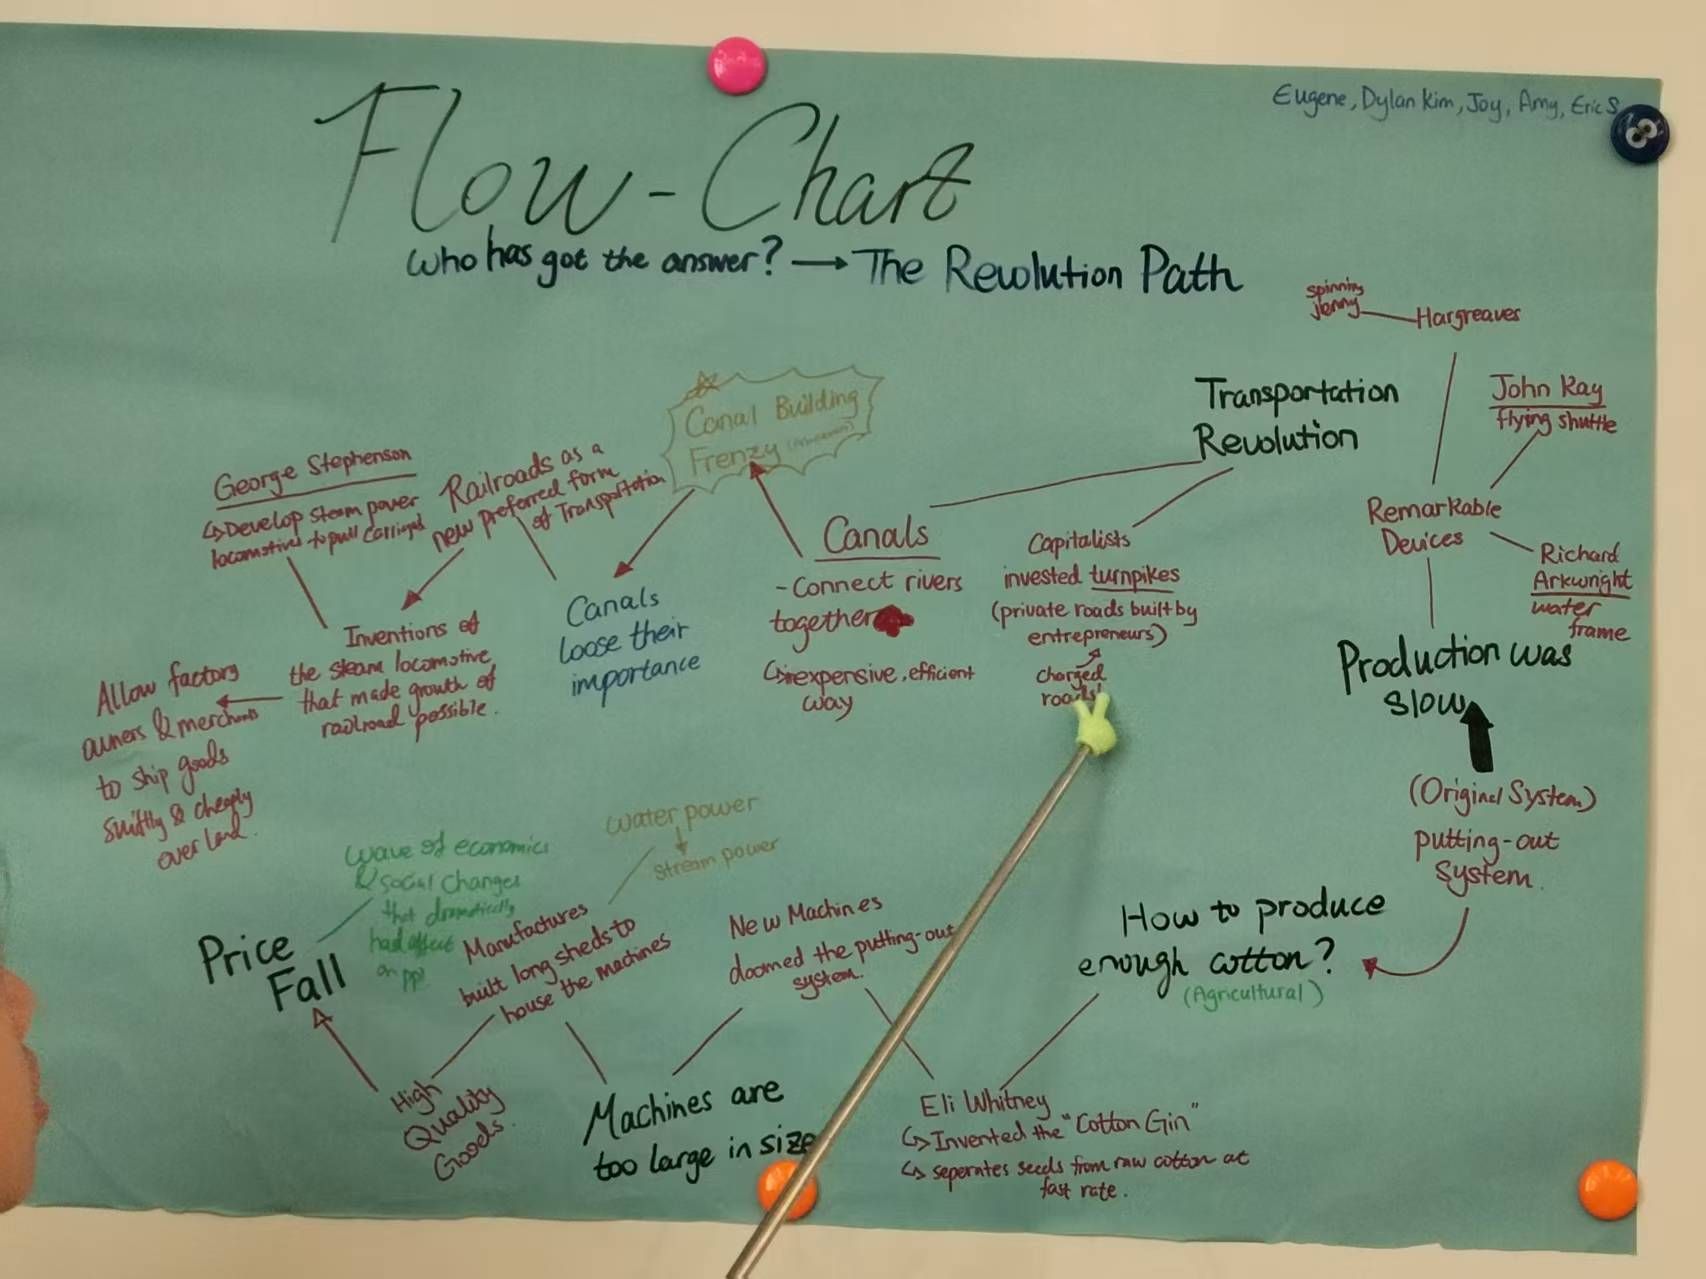 Eugene, Dylan Kim, Joy, Amy, Eric S.
Flow-Chart
who has got the answer? → The Revolution Path
spinning
jenny
Hargreaves
John Kay
flying shuttle
Remarkable
Devices
Richard
Arkwright
water
frame
Production was
slow
(Original System)
putting-out
system.
How to produce
enough cotton?
(Agricultural)
Transportation
Revolution
Capitalists
invested turnpikes
(private roads built by
entrepreneurs)
charged
Canals
- Connect rivers
together
↳ inexpensive, efficient
way
Canal Building
Frenzy
Canals
loose their
importance
Railroads as a
new preferred form
of Transportation
George Stephenson
↳ Develop steam power
locomotives to pull
Inventions of
the steam locomotive
that made growth of
railroad possible.
Allow factory
owners & merchants
to ship goods
swiftly & cheaply
over land.
wave of economics
& social changes
that dramatically
had affect
on ppl
Price
Fall
water power
stream power
Manufactures
built long sheds to
house the machines
High
Quality
Goods.
New Machines
doomed the putting-out
system.
Machines are
too large in size
Eli Whitney
↳ Invented the "Cotton Gin"
↳ seperates seeds from raw cotton at
fast rate.